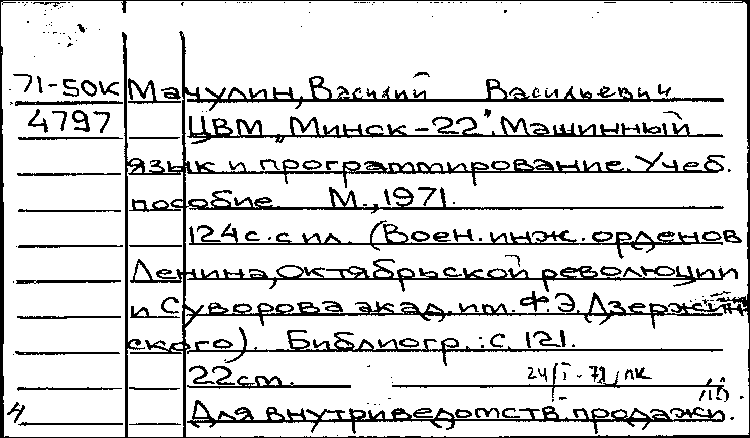 71-50к Мачулин, Василий Васильевич
4797 ЦВМ „Минск-22". Машинный
язык и программирование. Учеб.
пособие. М., 1971.
124 с. с ил. (Воен. инж. орденов
Ленина, Октябрьской революции
и Суворова акад. им. Ф.Э. Дзержин
ского). Библиогр.: с. 121.
22 cm.
Для внутриведомств. продажи.